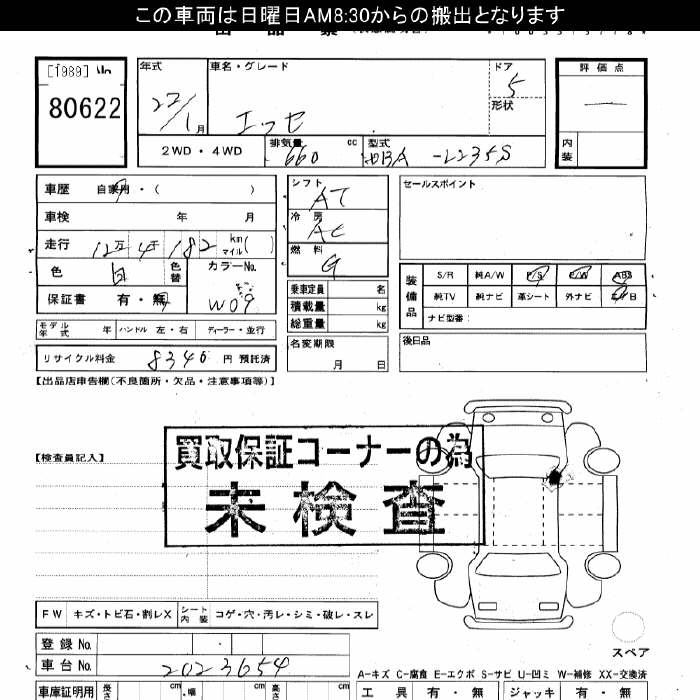 この車両は日曜日AM8:30からの搬出となります
[1989]
80622
年式
22/1月
車名・グレード
エッセ
ドア
5
形状
評価点
内装
2WD・4WD
排気量 660 cc
型式 DBA-L235S
車歴 自家用・( )
車検 年 月
走行 12万4千182 km マイル( )
色 白 色替
カラーNo. W09
保証書 有・無
モデル年式 年 ハンドル 左・右 ディーラー・並行
リサイクル料金 8340 円 預託済
シフト AT
冷房 AC
燃料 G
乗車定員 名
積載量 kg
総重量 kg
名変期限
月 日
セールスポイント
装備品
S/R 純A/W P/S P/W ABS
純TV 純ナビ 革シート 外ナビ エアB
ナビ型番:
後日品
【出品店申告欄(不良箇所・欠品・注意事項等)】
【検査員記入】
買取保証コーナーの為
未検査
FW キズ・トビ石・割レX シート内装 コゲ・穴・汚レ・シミ・破レ・スレ
登録No.
車台No. 2023654
スペア
A-キズ C-腐食 E-エクボ S-サビ U-凹ミ W-補修 XX-交換済
車庫証明用 長さ cm 幅 cm 高さ cm
工具 有・無 ジャッキ 有・無